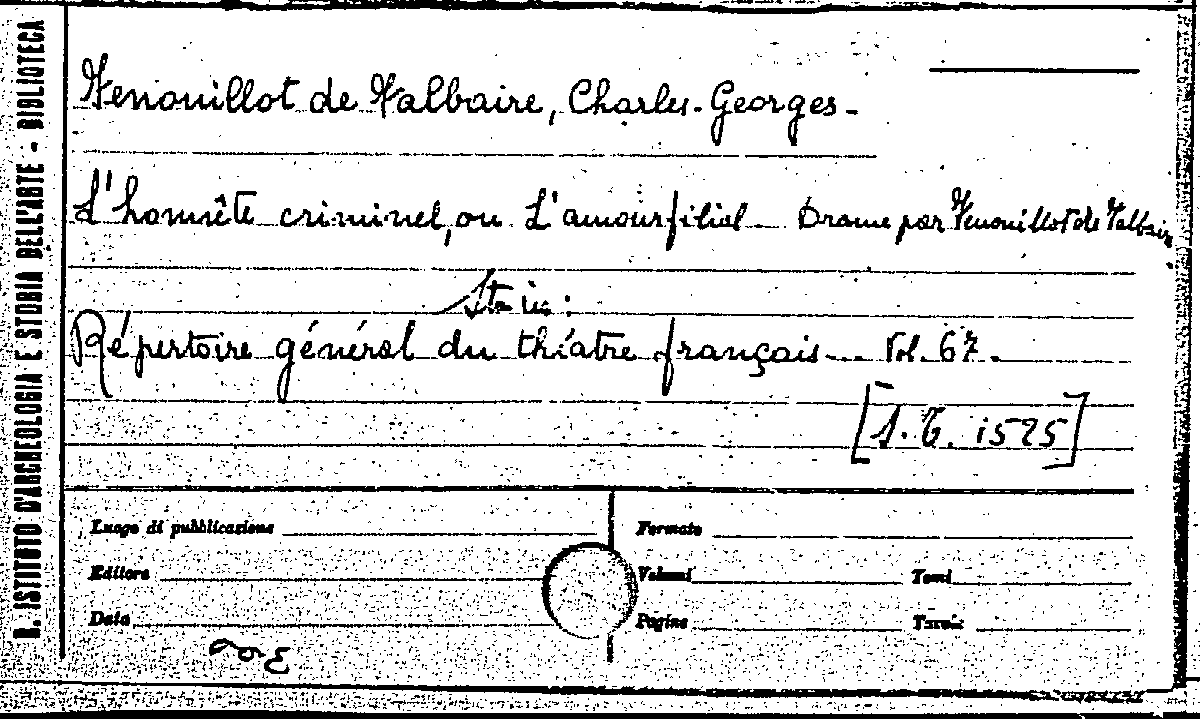 R. ISTITUTO D'ARCHEOLOGIA E STORIA DELL'ARTE - BIBLIOTECA
Fenouillot de Falbaire, Charles-Georges-
L'honnête criminel, ou L'amour filial. Drame par Fenouillot de Falbaire
Sta in:
Répertoire général du théatre français... Vol. 67.
[S.T. 1525]
Luogo di pubblicazione
Formato
Editore
Volumi
Tomi
Data
Pagine
Tavole